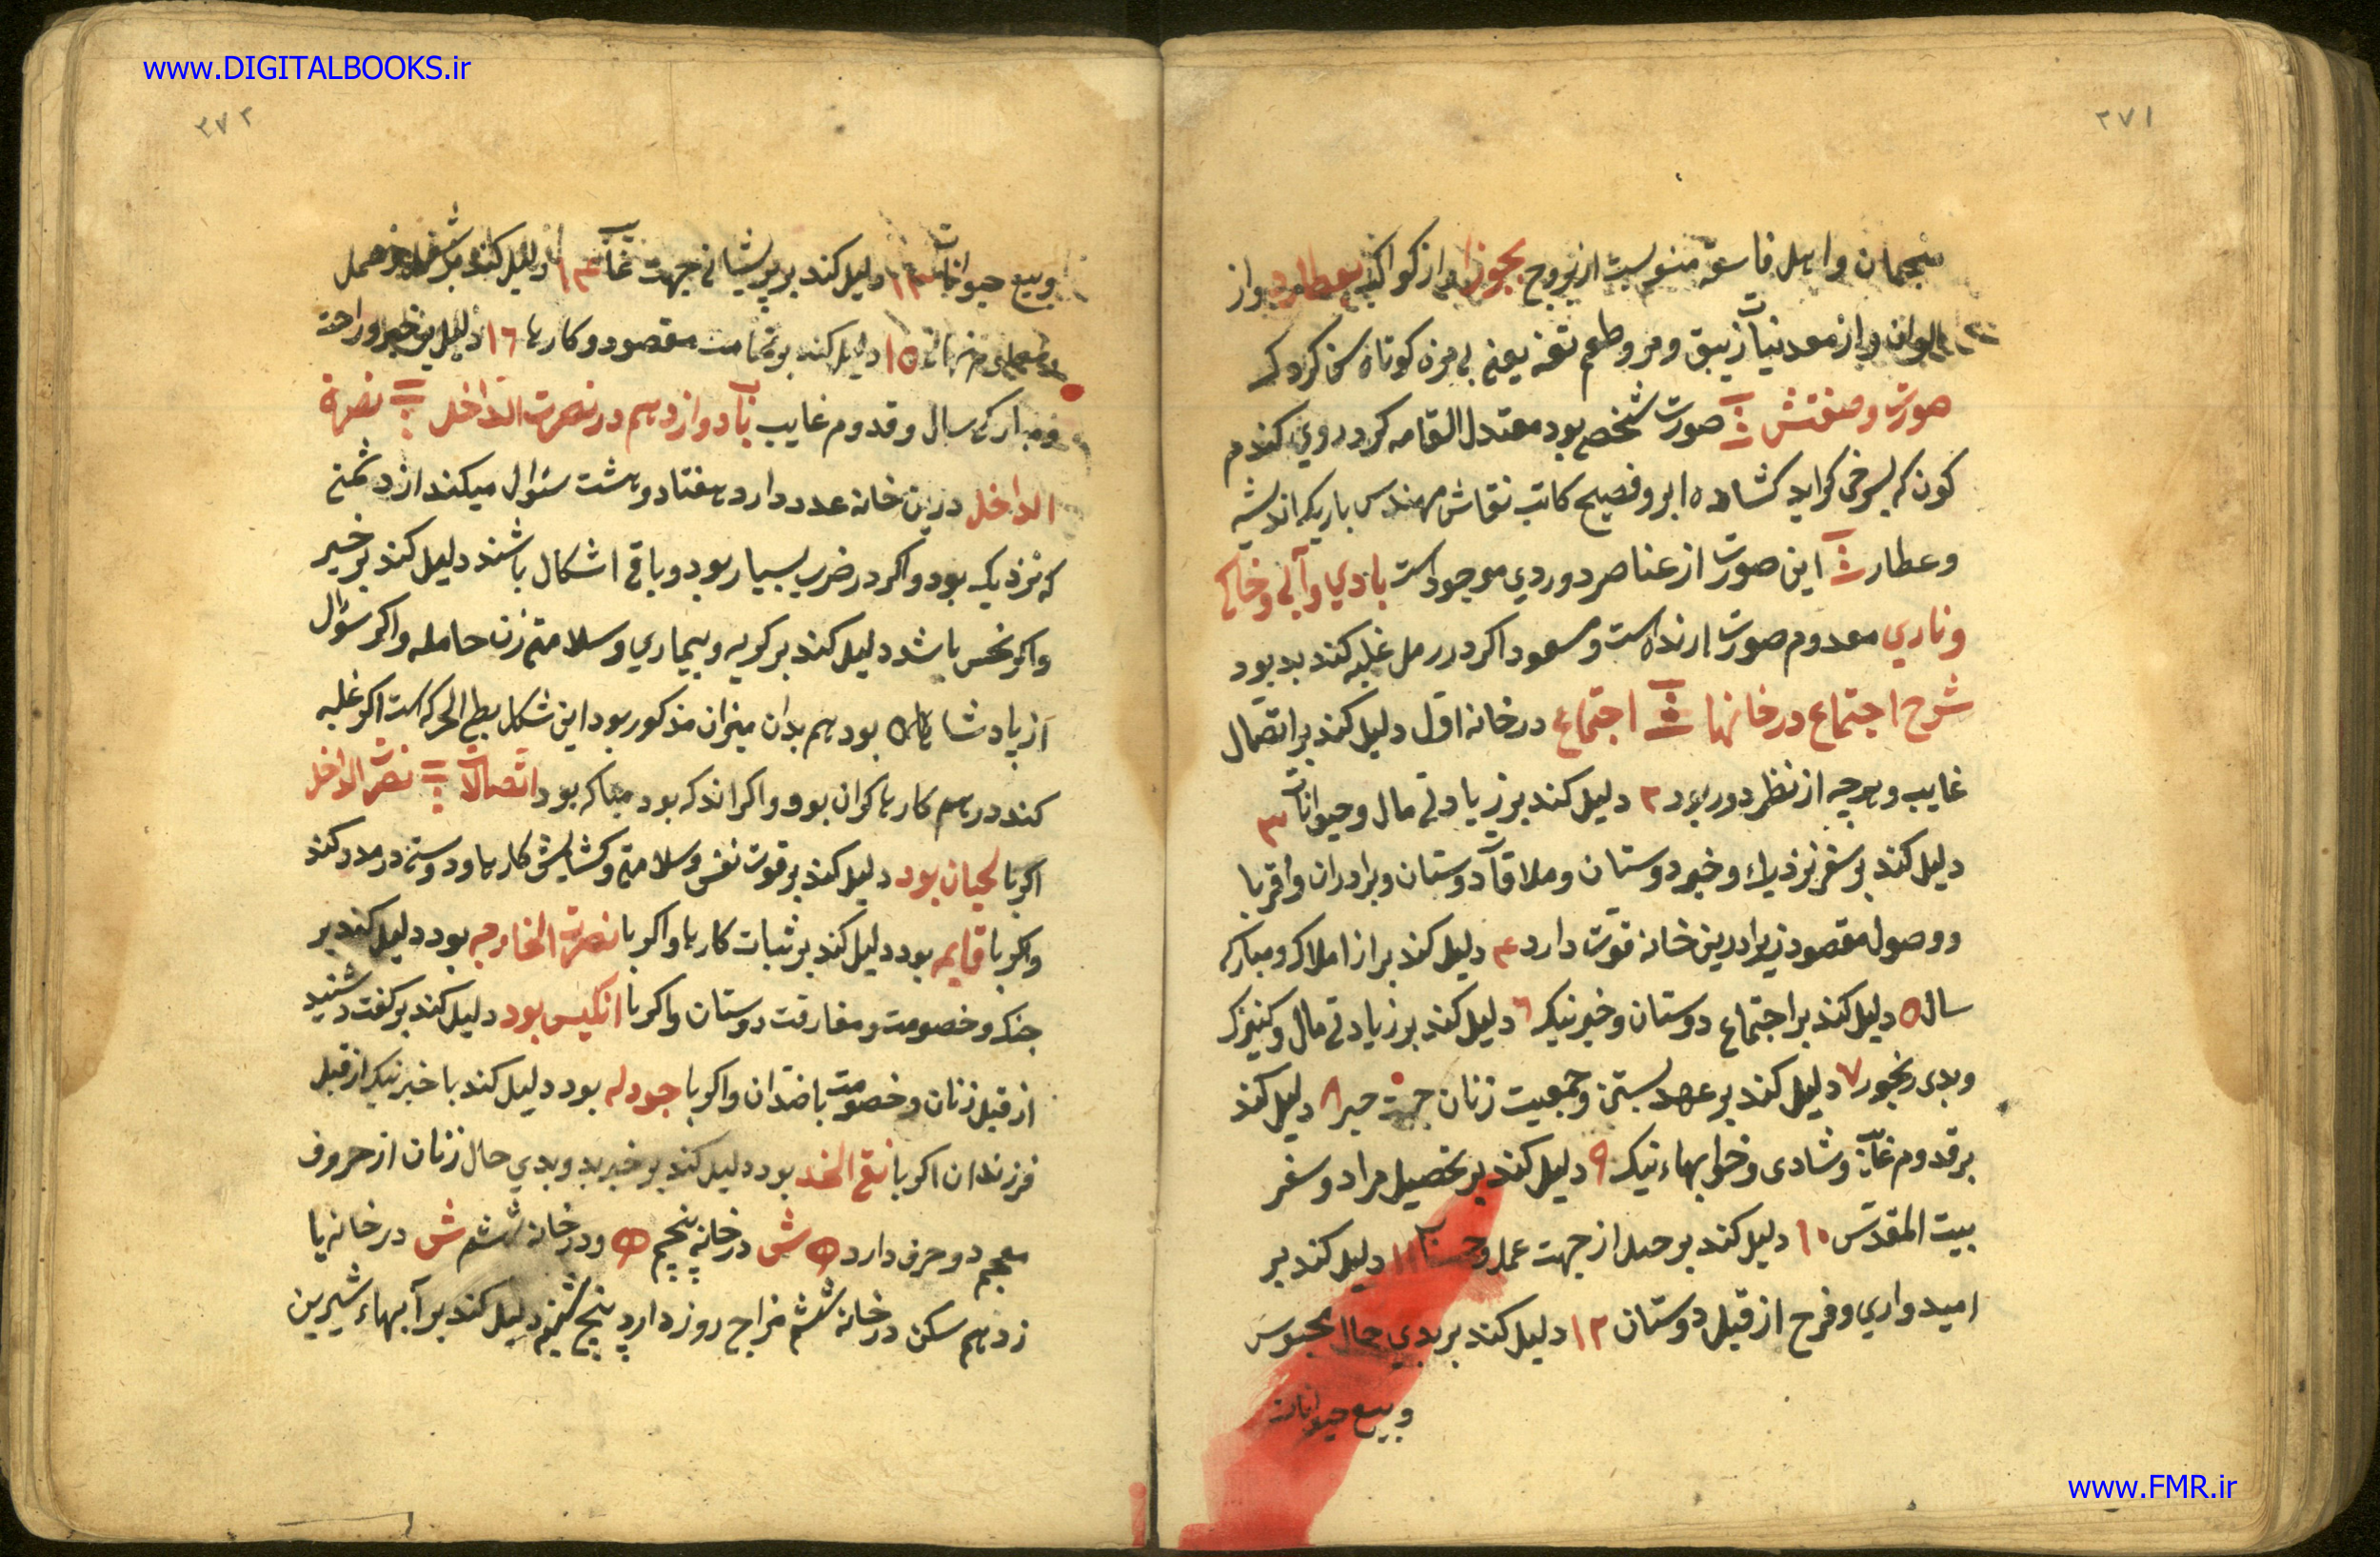 www.DIGITALBOOKS.ir
٢٧١
منجمان و اهل فاسقه منسوبست از بروج بجوزا و از کواکب بعطارد و از
الوان و از معدنیات زیبق و مر و طعم تفه یعنی بی مزه کوتاه سخن کرد که
صورت و صفتش صورت شخصی بود معتدل القامه کرد روی کندم
کون که بسرخی کراید کشاده ابرو فصیح کاتب نقاش مهندس باریک اندیشه
و عطار این صورت از عناصر دو ردی موجود است بادی و آبی و خاکی
و ناری معدوم صورت است و مسعود اکر در رمل غلبه کند بد بود
شرح اجتماع در خانها اجتماع در خانه اول دلیل کند بر اتصال
غایب و هرچه از نظر دور بود ٢ دلیل کند بر زیادتی مال و حیوانات ٣
دلیل کند بر سفر نزدیک و خبر دوستان و ملاقات دوستان و برادران و اقربا
و وصول مقصود زیرا درین خانه قوت دارد ۴ دلیل کند بر از املاک و مبارکی
سال ۵ دلیل کند بر اجتماع دوستان و خبر نیک ٦ دلیل کند بر زیادتی مال و کنیزک
و بدی رنجور ٧ دلیل کند بر عهد بستن و جمعیت زنان جهت خیر ٨ دلیل کند
بر قدوم غایب و شادی و خوابهاء نیک ٩ دلیل کند بر تحصیل مراد و سفر
بیت المقدس ١٠ دلیل کند بر حیل از جهت عمل و حساب ١١ دلیل کند بر
امیدواری و فرح از قبل دوستان ١٢ دلیل کند بر بدی حال محبوس
و بیع حیوانات
٢٧٢
و بیع حیوانات ١٣ دلیل کند بر پریشانی جهت غایب ١۴ دلیل کند بر حمل
١۵ دلیل کند بر تمامت مقصود و کارها ١٦ دلیل بر خیر و راحت
و مبارکی سال و قدوم غایب باب دوازدهم در نصرت الداخل نصرة
الداخل درین خانه عدد دارد هفتاد و هشت سئوال میکند از دشمنی
که نزدیک بود و اکر در ضرب بسیار بود و باقی اشکال باشند دلیل کند بر خیر
و اکر نحس باشد دلیل کند بر کریه و بیماری و سلامتی زن حامله و اکر سؤال
از پادشاهان بود هم بدان میزان مذکور بود این شکل بطی الحرکه است اکر غلبه
کند در هم کارها کران بود و اکر اندک بود مبارک بود اتصالات نصرت الداخل
اکر با لحیان بود دلیل کند بر قوت نفس و سلامتی و کشایش کارها و دوستی در مدد کند
و اکر با قایمه بود دلیل کند بر ثبات کارها و اکر با نصرت الخارجه بود دلیل کند بر
جنک و خصومت و مفارقت دوستان و اکر با انکیس بود دلیل کند بر کفت و شنید
از قبل زنان و خصومت با ضدان و اکر با جودله بود دلیل کند با خبر نیک از قبل
فرزندان اکر با نقی الخد بود دلیل کند بر خبر بد و بدی حال زنان از حروف
معجم دو حرف دارد ه ش در خانه پنجم ه و در خانه ششم ش در خانه یا
زدهم سکن در خانه ششم مزاج روز دارد پنج شنبه دلیل کند بر آبهاء شیرین
www.FMR.ir